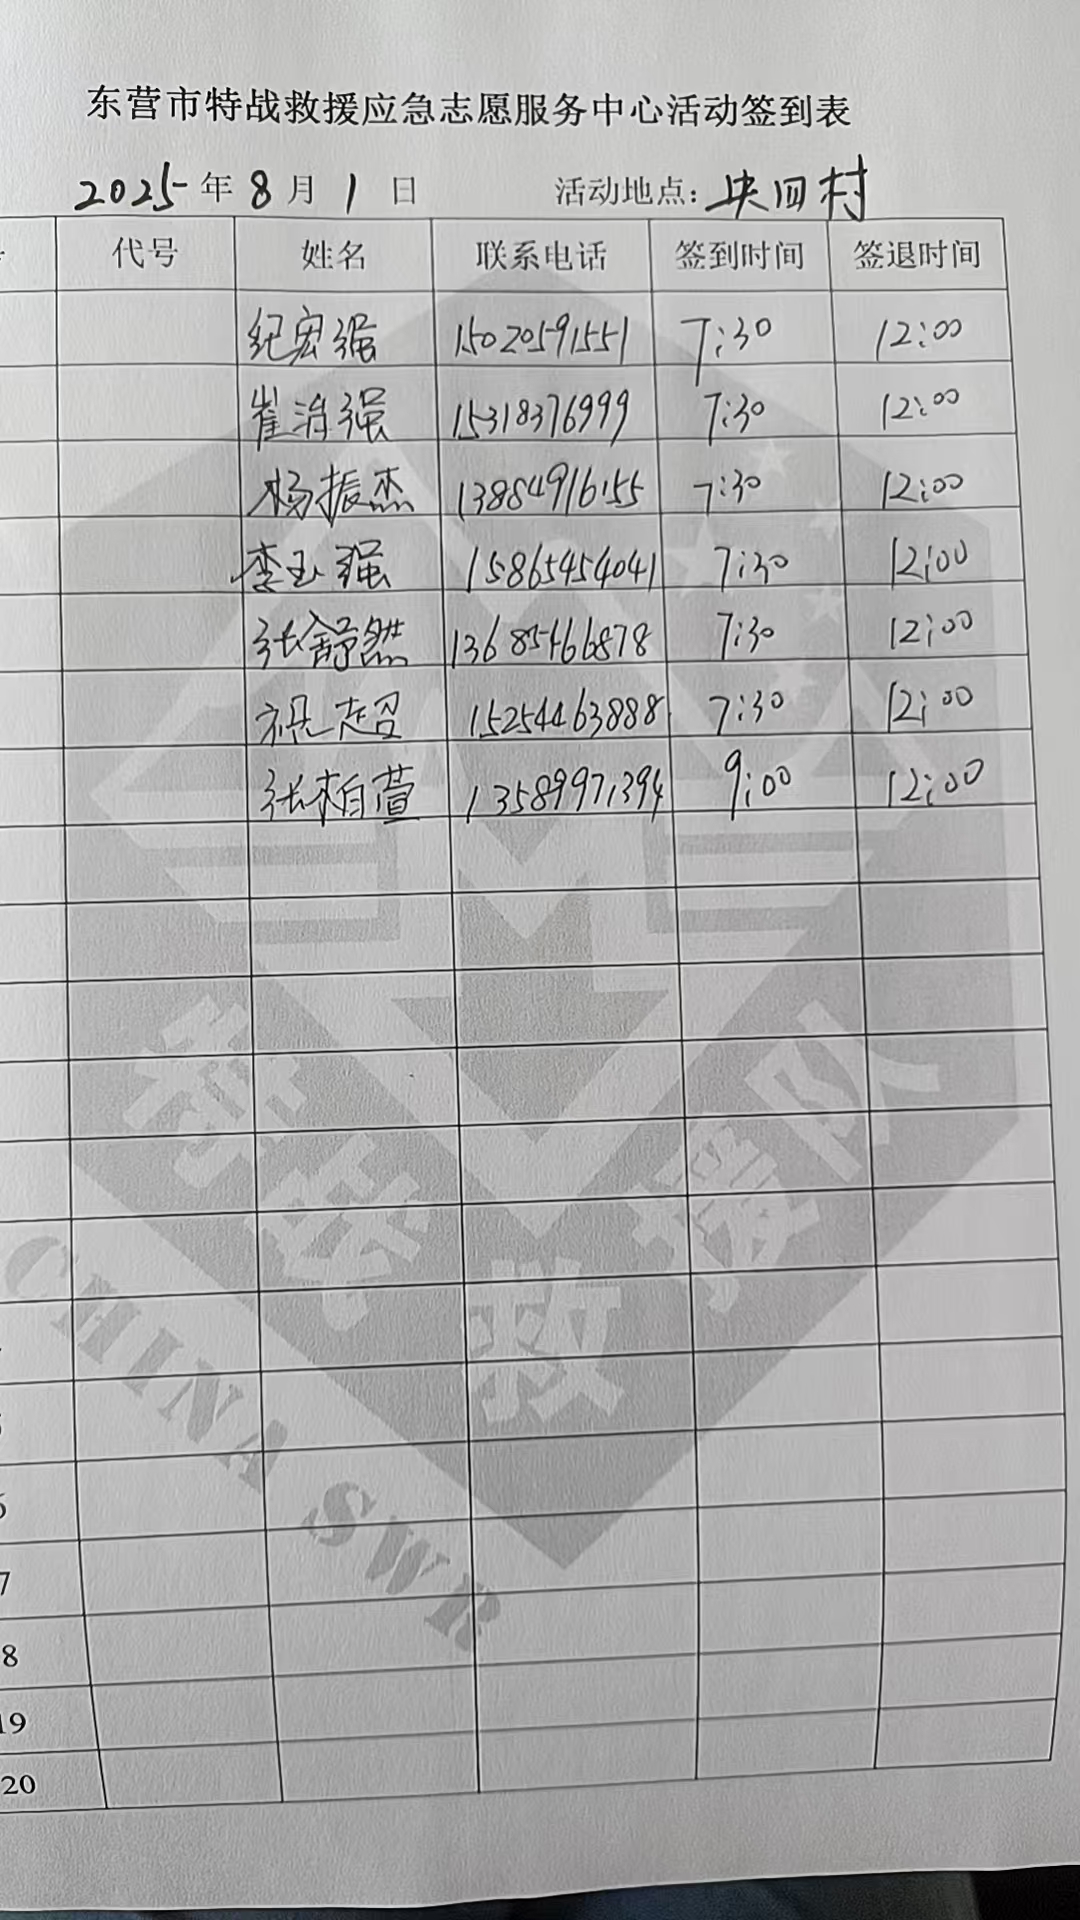 东营市特战救援应急志愿服务中心活动签到表
2025年8月1日 活动地点：央四村
代号 姓名 联系电话 签到时间 签退时间
纪宏强 15020591551 7:30 12:00
崔治强 15318376999 7:30 12:00
杨振杰 13884916155 7:30 12:00
李玉强 15865454041 7:30 12:00
张舒然 13685466878 7:30 12:00
超 15254463888 7:30 12:00
张柏萱 13589971394 9:00 12:00
特战救援队
CHINA SWR
6
7
8
19
20